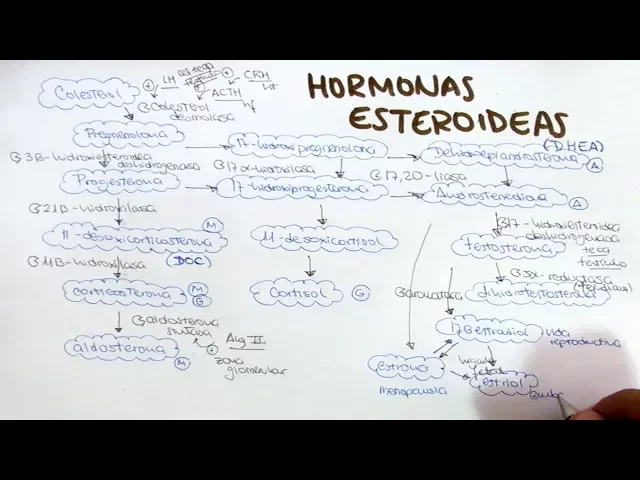 HORMONAS
ESTEROIDEAS
Colesterol
LH
CRH
ACTH
Colesterol
desmolasa
Pregnenolona
17-hidroxipregnenolona
Dehidroepiandrosterona
(DHEA)
A
3B-hidroxiesteroidea
deshidrogenasa
17α-hidroxilasa
17,20-liasa
Progesterona
17-hidroxiprogesterona
Androstenediona
A
21B-hidroxilasa
17-hidroxiesteroidea
deshidrogenasa
teca
testículo
11-desoxicorticosterona
M
(DOC)
11-desoxicortisol
testosterona
11B-hidroxilasa
5α-reductasa
corticosterona
M
G
Cortisol
G
aromatasa
dihidrotestosterona
aldosterona
sintasa
Ang II
zona
glomerular
17B estradiol
vida
reproductiva
aldosterona
M
estrona
menopausia
fetal
estriol